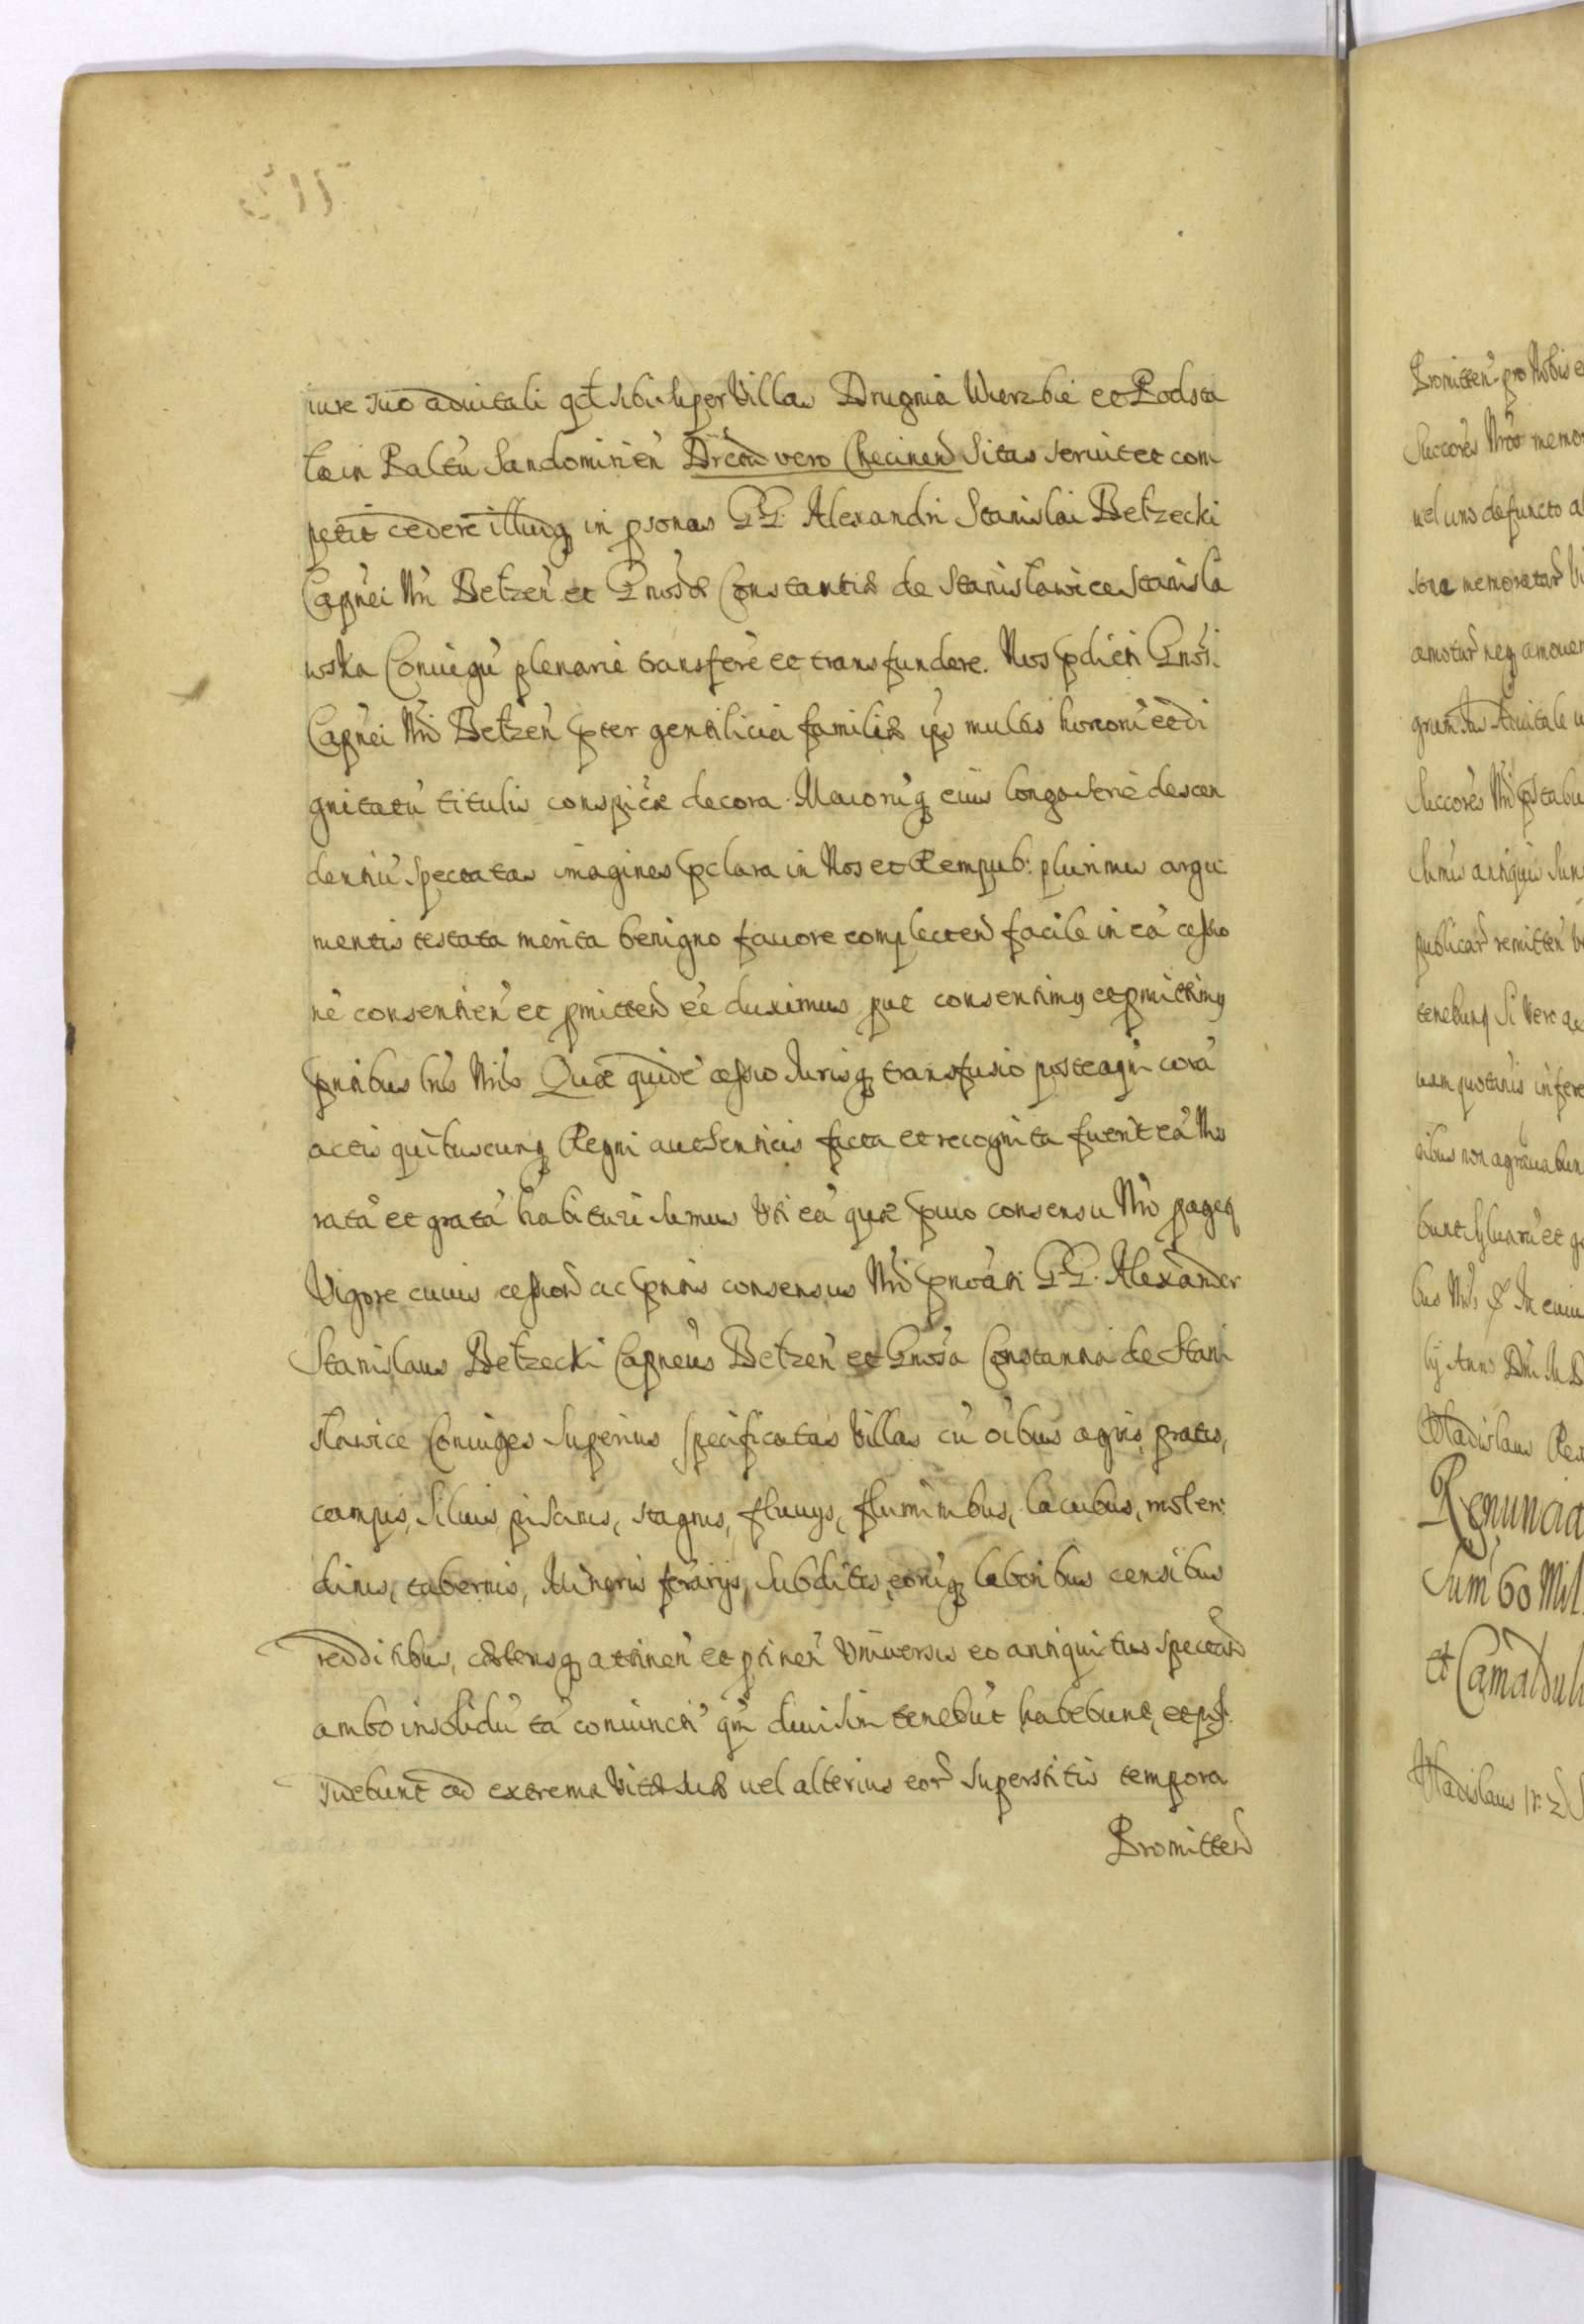 iure suo aduitali qd sibi super Villas Drugnia Wierzbie et Podsta
la in Paltu Sandomirien Drctu vero Checinen Sitas seruit et com
petit cedere illudq in psonas GG. Alexandri Stanislai Bełzecki
Capnei Nri Bełzen et Gnosæ Constantiæ de Stanisławice Stanisla
wska Coniugu plenarie transfere et transfundere. Nos pdicti Gnosi
Capnei Nri Bełzen pter gentilicia familiæ ipo multis honoru et di
gnitatu titulis conspicæ decora Maioruq eius longa serie descen
dentiu spectatas imagines pclara in Nos et Rempub: plurimis argu
mentis testata merita benigno fauore complecten facile in ea cessio
ne consentien et pmitten ee duximus put consentimus et pmittimus
pntibus lris Nris Quæ quide cessio Jurisq transfusio posteaqm cora
actis quibuscunq Regni autenticis facta et recognita fuerit ea Nos
rata et grata habituri sumus Uti ea quæ puio consensu Nro pagetr
Vigore cuius cession ac pntis consensus Nri pnoati GG. Alexander
Stanislaus Bełzecki Capneus Bełzen et Gnosa Constantia de Stani
sławice Coniuges superius specificatas Villas cu oibus agris, pratis,
campis, Siluis, piscinis, stagnis, fluuys, fluminibus, lacubus, molen:
dinis, tabernis, Mineris ferarys, subditis, eoruq laboribus censibus
redditibus, cæterisq attinen et ptinen Vniuersis eo antiquitus spectan
ambo insolidu ta coniuncti qm diuisim tenebut habebunt, et pos
sidebunt ad extrema Vitæ suæ uel alterius eor superstitis tempora
Promitten
Promitten pro Nobis e
Succores Nros memo
uel uno defuncto a
sona memoratar
amotur neq amouen
grum Jus Aduitale
Succores Nri pstabu
sumis antiquis
publicar remitten
tenebunt Si Vero
uam quotanis infere
oibus non agrauabun
bunt Syluaru et
bus Nris
Anno Dni
Vladislaus Rex
Renunciatio
Sum 60 Mil
et Camaldul
Vladislaus